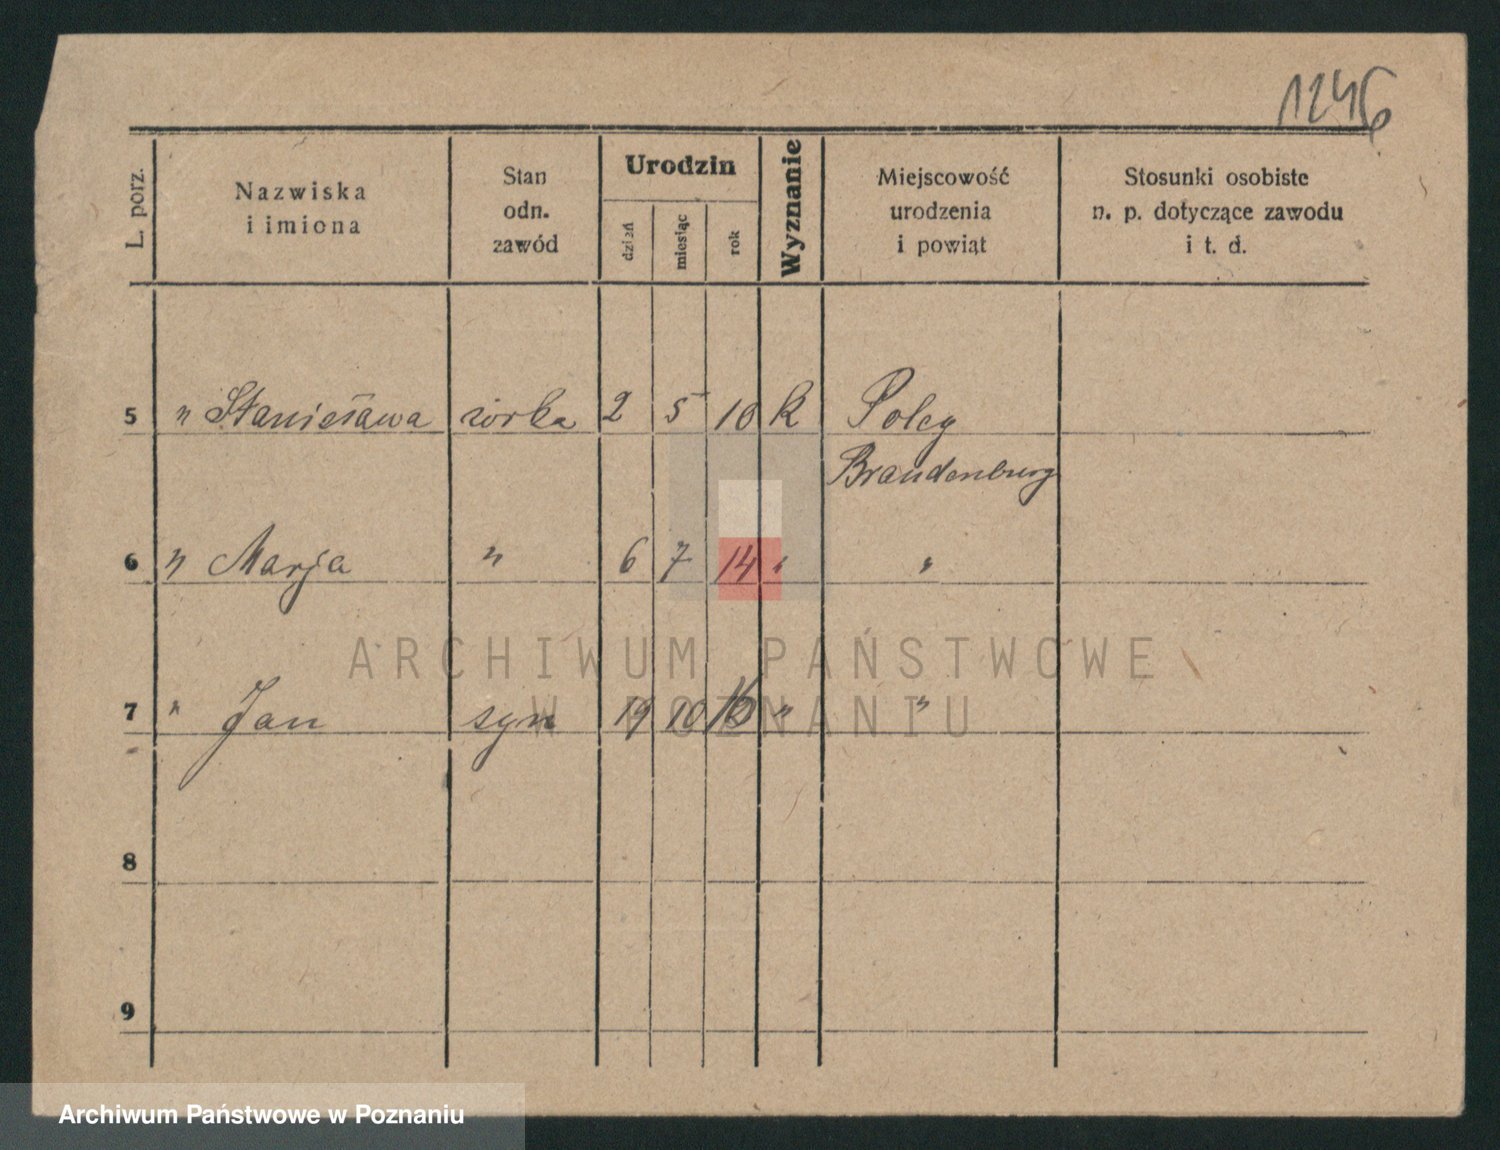 1246
L. porz.
Nazwiska
i imiona
Stan
odn.
zawód
Urodzin
dzień
miesiąc
rok
Wyznanie
Miejscowość
urodzenia
i powiąt
Stosunki osobiste
n. p. dotyczące zawodu
i t. d.
5 " Stanisława córka 2 5 10 k
Brandenburg
6 " Marja " 6 7 14 " "
ARCHIWUM PAŃSTWOWE
W POZNANIU
7 " Jan syn 19 10 16 " "
8
9
Archiwum Państwowe w Poznaniu